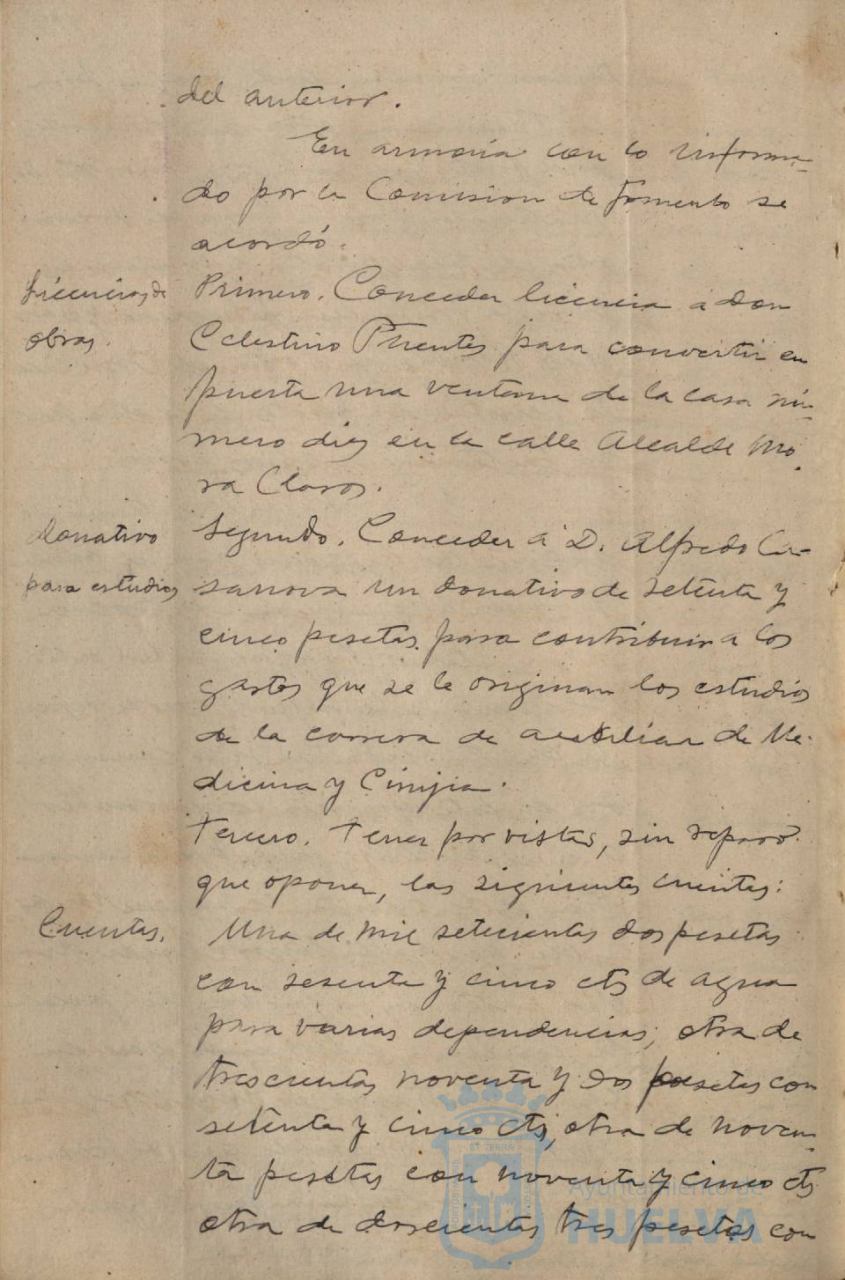 del anterior.
En armonia con lo informa-
do por la Comision de fomento se
acordó.
Licencias de
obras.
Primero. Conceder licencia a don
Celestino Puentes para convertir en
puerta una ventana de la casa nú-
mero diez en la calle Alcalde Mo
ra Claros.
Donativo
para estudios
Segundo. Conceder a D. Alfredo Ca-
sanova un donativo de setenta y
cinco pesetas para contribuir a los
gastos que se le originan los estudios
de la carrera de auxiliar de Me-
dicina y Cirujia.
Tercero. Tener por vistas, sin reparo
que oponer, las siguientes cuentas:
Cuentas.
Una de mil setecientas dos pesetas
con sesenta y cinco cts de agua
para varias dependencias; otra de
trescientas noventa y dos pesetas con
setenta y cinco cts, otra de noven-
ta pesetas con noventa y cinco cts
otra de doscientas tres pesetas con
Ayuntamiento de
HUELVA